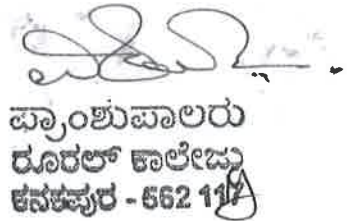 ಪ್ರಾಂಶುಪಾಲರು
ರೂರಲ್ ಕಾಲೇಜು
ಕನಕಪುರ - 562 117